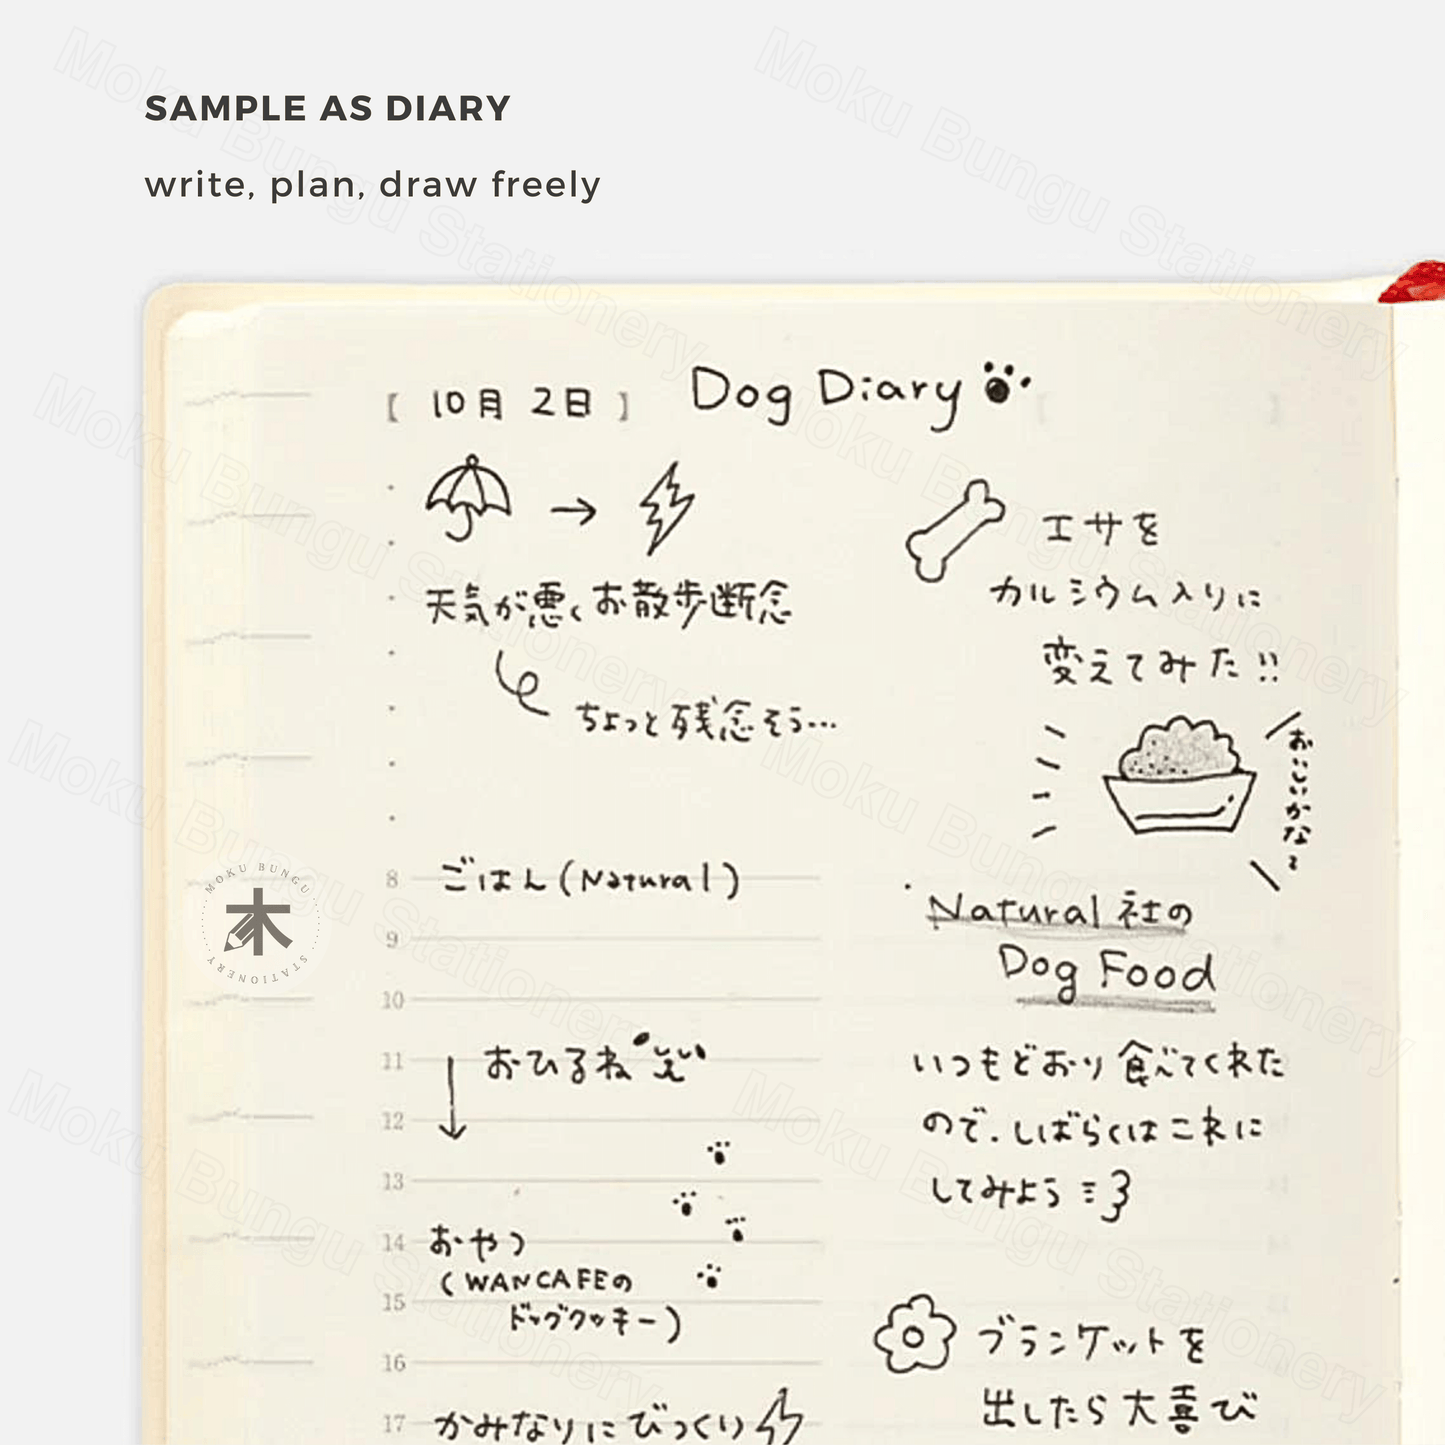 SAMPLE AS DIARY
write, plan, draw freely
[ 10月 2日 ] Dog Diary
天気が悪くお散歩断念
ちょっと残念そう…
エサを
カルシウム入りに
変えてみた!!
おいしいかな?
8 ごはん(Natural)
9
10
11 おひるね
12
13
14 おやつ
(WANCAFEの
15 ドッグクッキー)
16
17 かみなりにびっくり
Natural社の
Dog Food
いつもどおり食べてくれた
ので、しばらくはこれに
してみよう
ブランケットを
出したら大喜び
MOKU BUNGU
木
STATIONERY
Moku Bungu Stationery